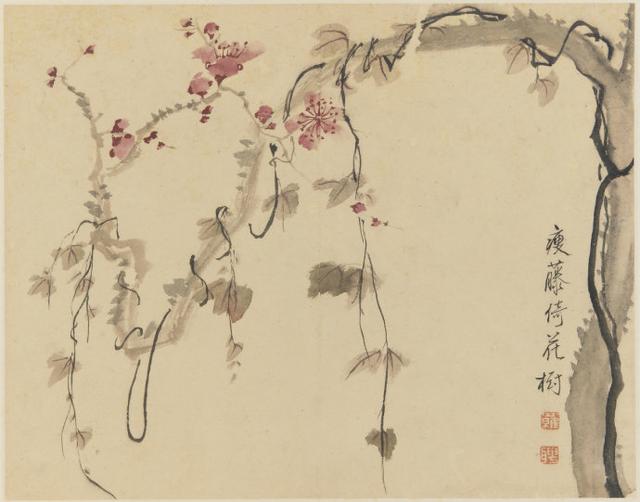 瘦藤倚花樹